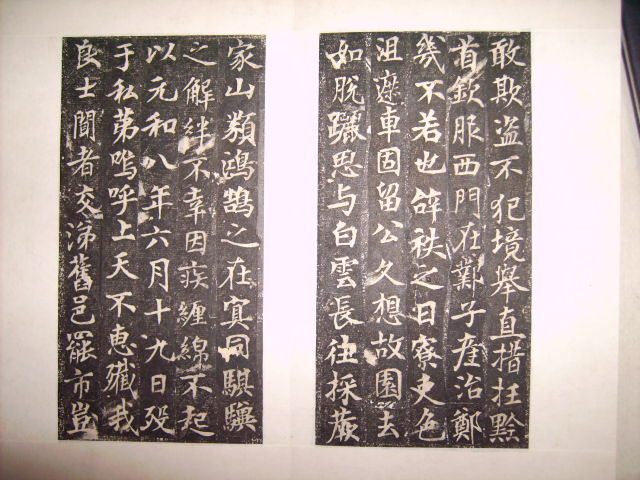 敢欺盗不犯境舉直措抂黔
首欽服西門在鄴子產治鄭
幾不若也辭秩之日寮吏色
沮遮車固留公久想故園去
如脫躧思与白雲長往採蕨
家山類鴻鵠之在冥同騏驥
之解絆不幸因疾纏綿不起
以元和八年六月十九日歿
于私苐嗚呼上天不惠殲我
良士聞者交涕舊邑罷市豈